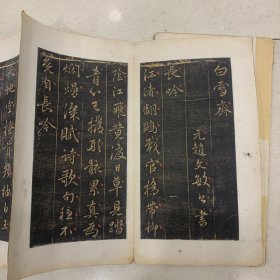 白雪齋
元趙文敏公書
長吟
江渚翻鷗戲官橋帶柳
陰江飛竟渡日草見踏
青心已撥形骸累真為
爛熳深賦詩歌句穩不
免自長吟